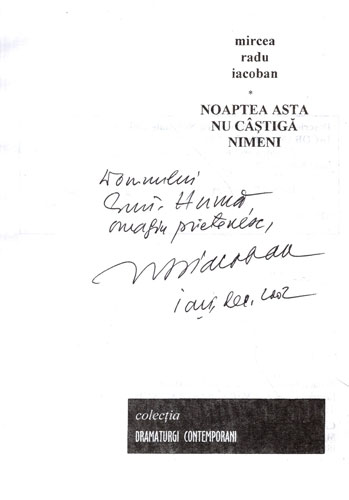 mircea
radu
iacoban
*
NOAPTEA ASTA
NU CÂȘTIGĂ
NIMENI
Domnului
Humă,
omagiu prietenesc,
MRIacoban
Iași, dec. 2002
colecția
DRAMATURGI CONTEMPORANI